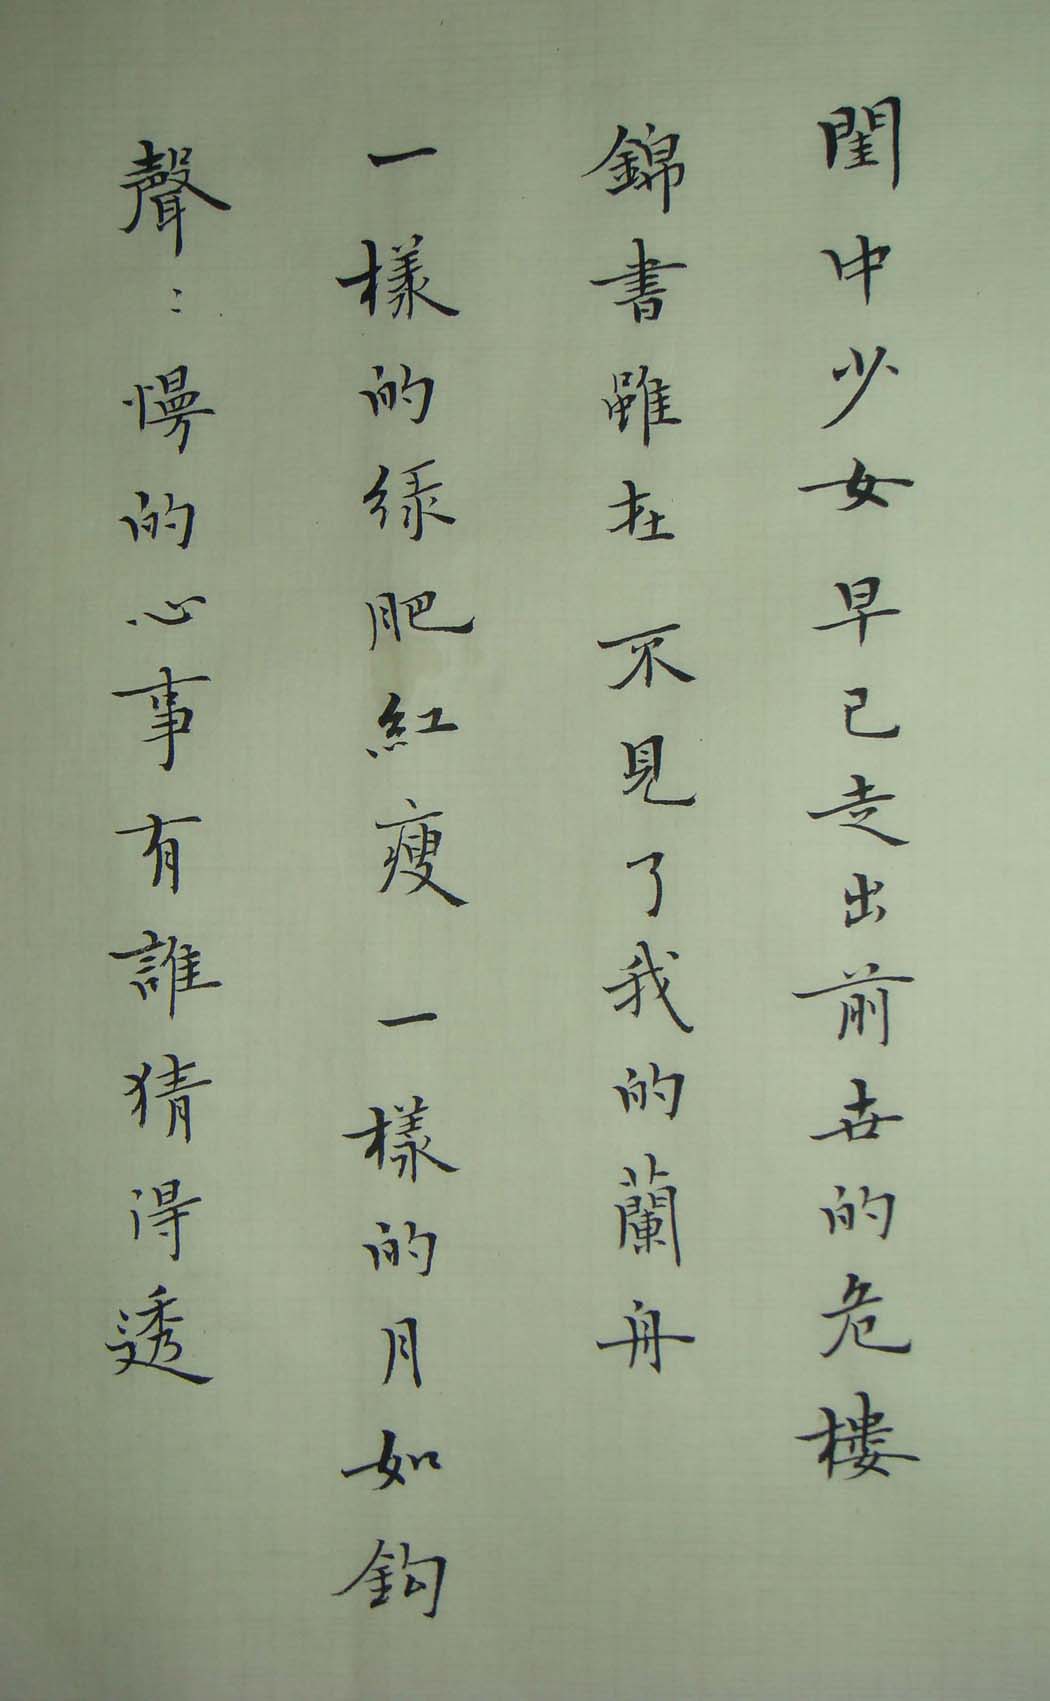 閨中少女早已走出前世的危樓
錦書雖在不見了我的蘭舟
一樣的绿肥紅瘦 一樣的月如鈎
聲：慢的心事有誰猜得透